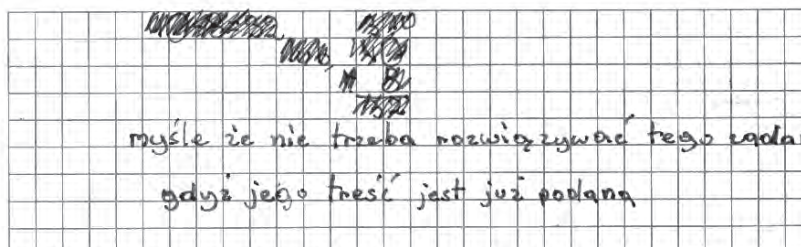 myśle że nie trzeba rozwiązywać tego zada
gdyż jego treść jest już podana